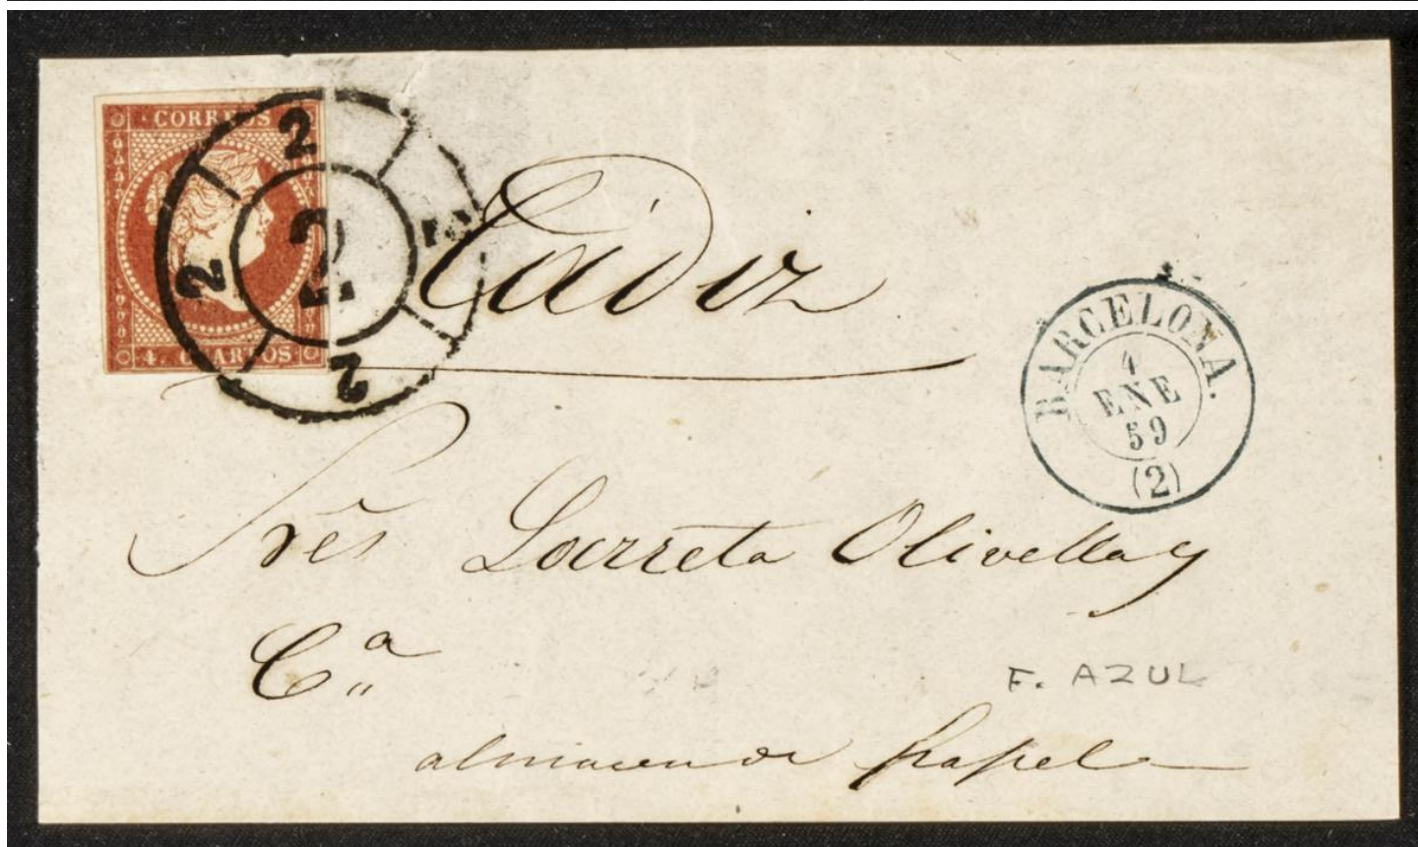 CORREOS
4. CUARTOS
2
2
2
2
2
Cádiz
BARCELONA.
4
ENE
59
(2)
Srēs Larreta Olivella y
Cª
almacen de papel
F. AZUL